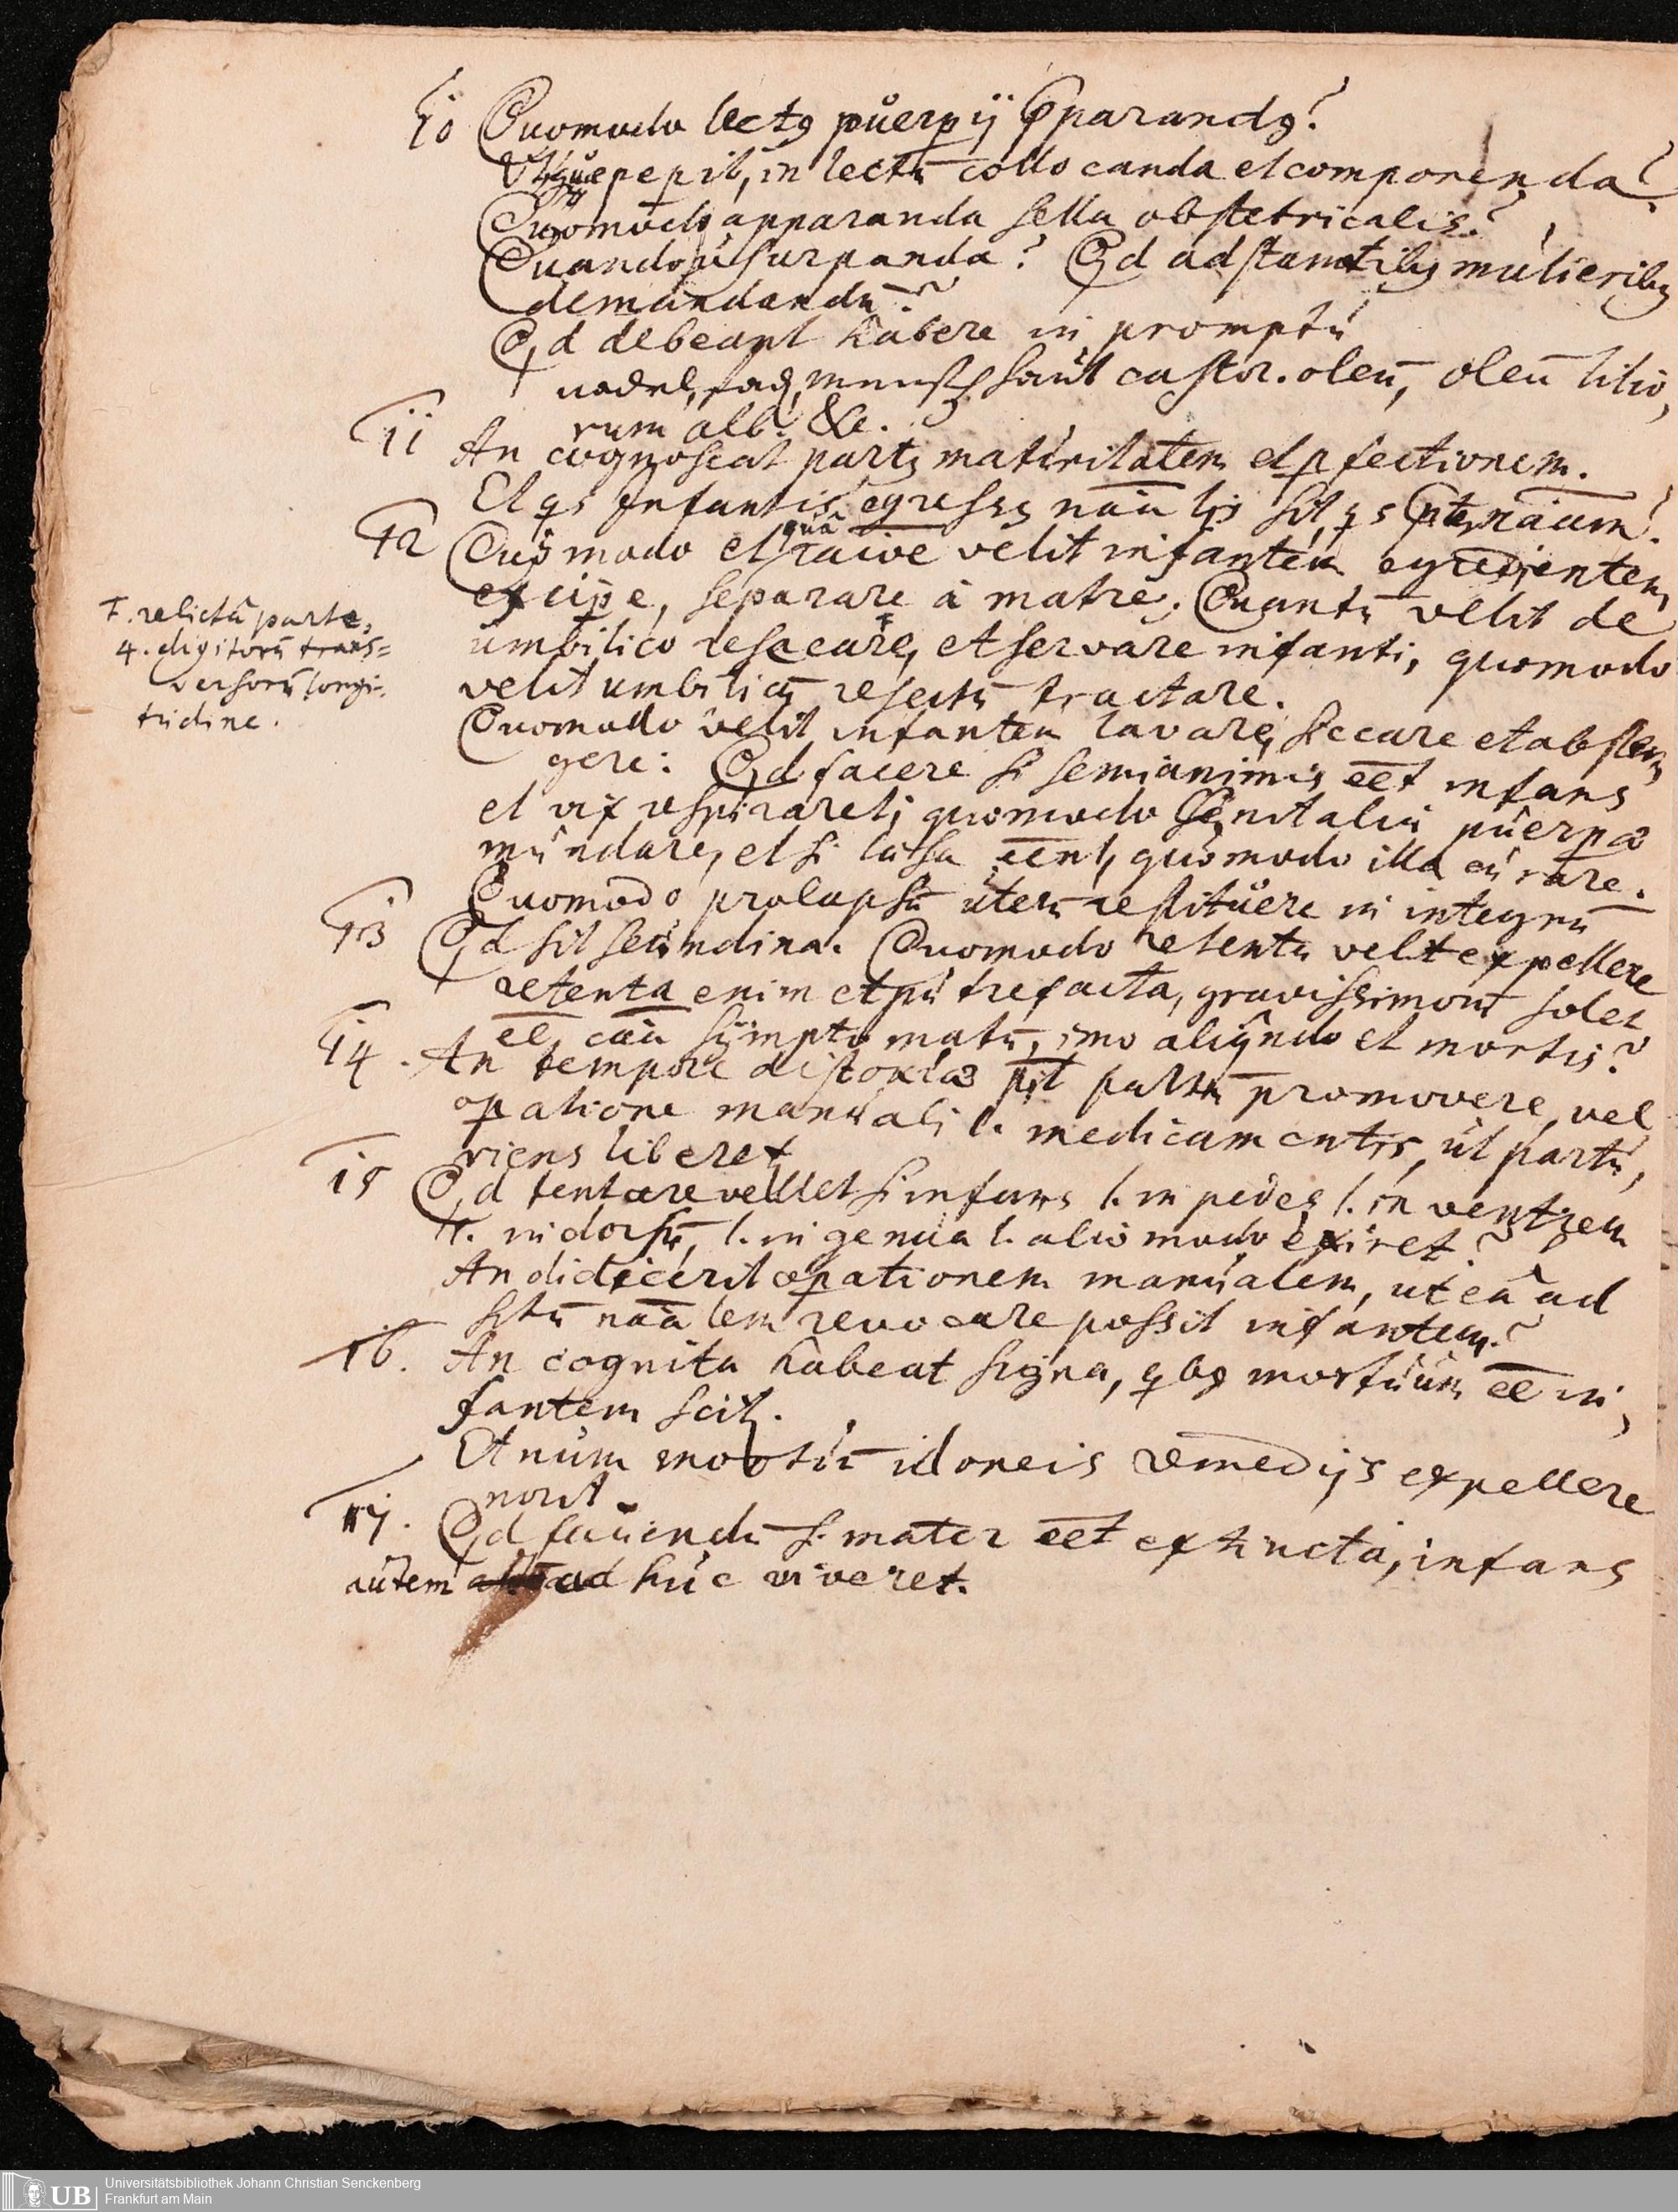 10 Quomodo lectꝰ puerpij p̄parandꝰ?
Ut quae peꝑit, in lectū collocanda et componenda?
Quomodo apparanda sella obstetricalis?
Quando usurpanda? Qd adstantibꝰ mulieribꝰ
demandandū?
Qd debeant habere in promptu
nadel, fad, castor. oleū, oleū lilio,
rum alb. &c.
11 An cognoscat partꝰ maturitatem et ꝑfectionem.
Et qs Infantis egressꝰ nāālis sit, qs p̄ter nāām?
12 Quomodo et quâ rāōe velit infantem egredientem
excipe, separare à matre. Quantū velit de
umbilico resecare, Ŧ et servare infanti, quomodo
velit umbilicū resectū tractare.
Ŧ. relictâ parte,
4. digitorū trans=
versorū longi=
tudine.
Quomodo velit infantem lavare, siccare et abster,
gere: Qd facere si semianimis eet infans
et vix respiraret; quomodo genitalia puerpae
mundare, et si laesa eent, quomodo illa curare.
Quomodo prolapsū uterū restituere in integrū
13 Qd sit secundina. Quomodo retentā velit expellere
retenta enim et putrefacta, gravissimorū solet
ee cāā symptomatū, imo aliqndo et mortis?
14. An tempore distokias pit partū promovere, vel
oꝑatione manuali l. medicamentis, ut partu,
riens liberet
15 Qd tentare vellet si infans l. in pedes l. in ventrem
l. in dorsū, l. in genua l. alio modo exiret?
An didicerit oꝑationem manualem, ut eâ ad
sitū nāālem revocare possit infantem?
16. An cognita habeat signa, qbꝰ mortuum ee in,
fantem scit.
Et num mortuū idoneis remedijs expellere
norit.
17. Qd faciendū si mater eet extincta, infans
autem adhuc viveret.
Universitätsbibliothek Johann Christian Senckenberg
Frankfurt am Main
UB